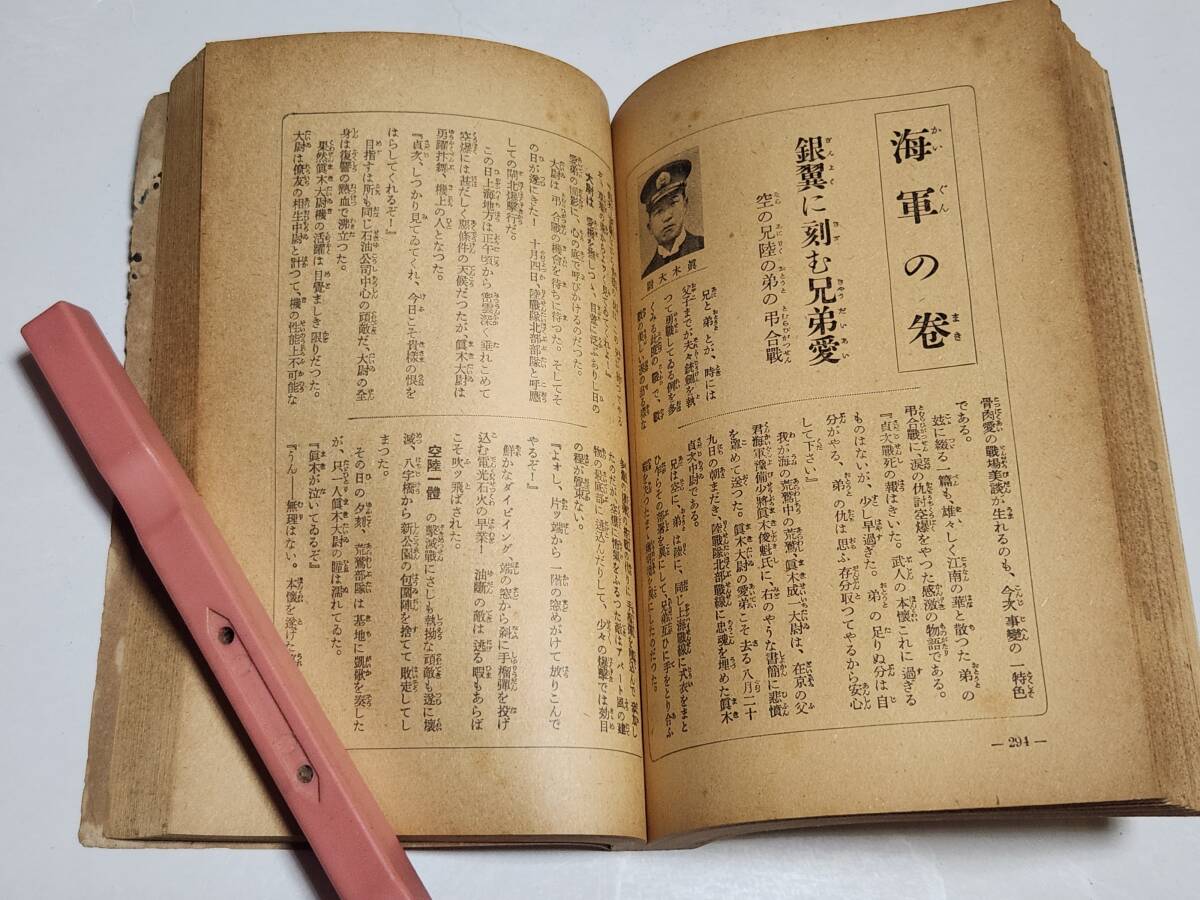 海軍の卷
銀翼に刻む兄弟愛
空の兄陸の弟の弔合戰
眞木大尉
兄と弟とが、時には
父子までが夫々銃劍を執
つて勇戰してゐる例を多
くみる此度の戰で、戰
骨肉愛の戰場美談が生れるのも、今次事變の一特色
である。
玆に綴る一篇も、雄々しく江南の華と散つた弟の
弔合戰に、淚の仇討空爆をやつた感激の物語である。
『貞次戰死の報はきいた。武人の本懷これに過ぎる
ものはないが、少し早過ぎた。弟の足りぬ分は自
分がやる、弟の仇は思ふ存分取つてやるから安心
して下さい』
我が海の荒鷲中の荒鷲、眞木成一大尉は、在京の父
君海軍豫備少將眞木俊魁氏に、右のやうな書簡に悲憤
を罩めて送つた。眞木大尉の愛弟こそ去る八月二十
九日の朝まだき、陸戰隊北部戰線に忠魂を埋めた眞木
貞次中尉である。
兄は空に、弟は陸に、同じ上海戰線に天衣をまと
ひながらその部署を異にして、兄弟互ひに手をとり合ふ
— 294 —
大尉は
愛弟の面影に、心の底で呼びかけるのだつた。
大尉は弔合戰の機會を待ちに待つた。そしてそ
の日が遂にきた！十月四日、陸戰隊北部部隊と呼應
しての閘北爆擊行だ。
この日上海地方は正午頃から密雲深く垂れこめて
空爆には甚だしく惡條件の天候だつたが眞木大尉は
勇躍抃舞、機上の人となつた。
『貞次、しつかり見てゐてくれ、今日こそ貴樣の恨を
はらしてくれるぞ！』
目指すは所も同じ石油公司中心の頑敵だ、大尉の全
身は復讐の熱血で沸立つた。
果然眞木大尉機の活躍は目覺ましき限りだつた。
大尉は僚友の相生中尉と計つて、機の性能上不可能な
たのだが、空爆に恨をふるつた敵はアパート風の建
物の最底部に逃込んだりして、少々の爆擊では効目
の程が覺束ない。
『よォし、片ッ端から一階の窓めがけて放りこんで
やるぞ！』
鮮かなダイビング、端の窓から斜に手榴彈を投げ
込む電光石火の早業！油斷の敵は逃る暇もあらば
こそ吹ッ飛ばされた。
空陸一體の擊滅戰にさしも執拗な頑敵も遂に壞
滅、八字橋から新公園の包圍陣を捨てて敗走してし
まつた。
その日の夕刻、荒鷲部隊は基地に凱歌を奏した
が、只一人眞木大尉の瞳は濡れてゐた。
『眞木が泣いてゐるぞ』
『うん　無理はない。本懷を遂げた